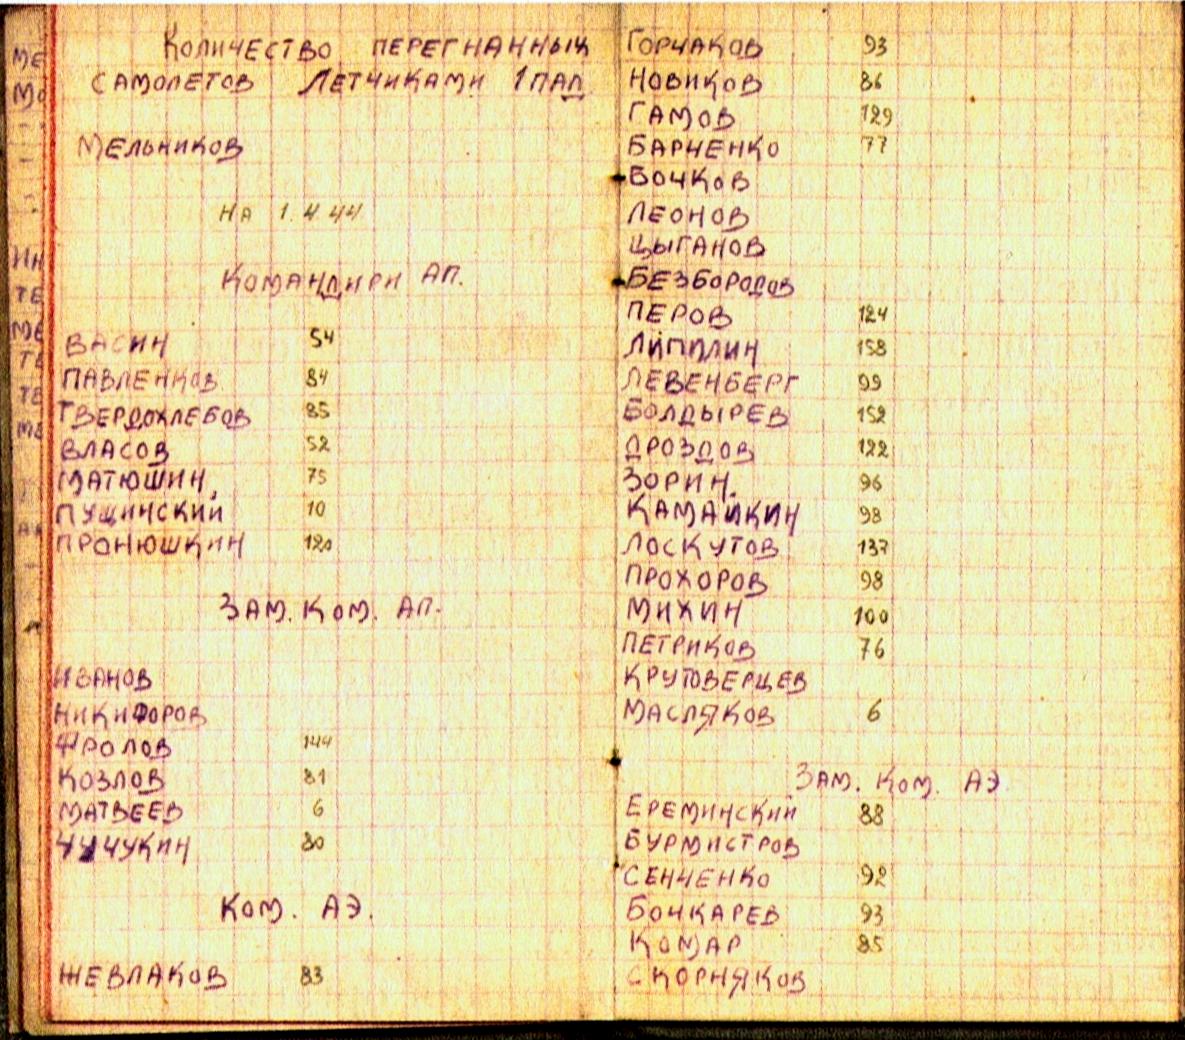 Количество перегнанных
самолетов летчиками 1 ПАД
Мельников
на 1.4.44
Командири АП.
Васин 54
Павленков 84
Твердохлебов 85
Власов 52
Матюшин, 75
Пущинский 10
Пронюшкин 120
Зам. Ком. АП.
Иванов
Никифоров
Фролов 144
Козлов 81
Матвеев 6
Чучукин 80
Ком. АЭ.
Жевлаков 83
Горчаков 93
Новиков 86
Гамов 129
Барченко 77
Бочков
Леонов
Цыганов
Безбородов
Перов 124
Липилин 158
Левенберг 99
Болдырев 152
Дроздов 122
Зорин. 96
Камайкин 98
Лоскутов 137
Прохоров 98
Михин 100
Петриков 76
Крутоверцев
Масляков 6
Зам. Ком. АЭ.
Ереминский 88
Бурмистров
Сенченко 92
Бочкарев 93
Комар 85
Скорняков